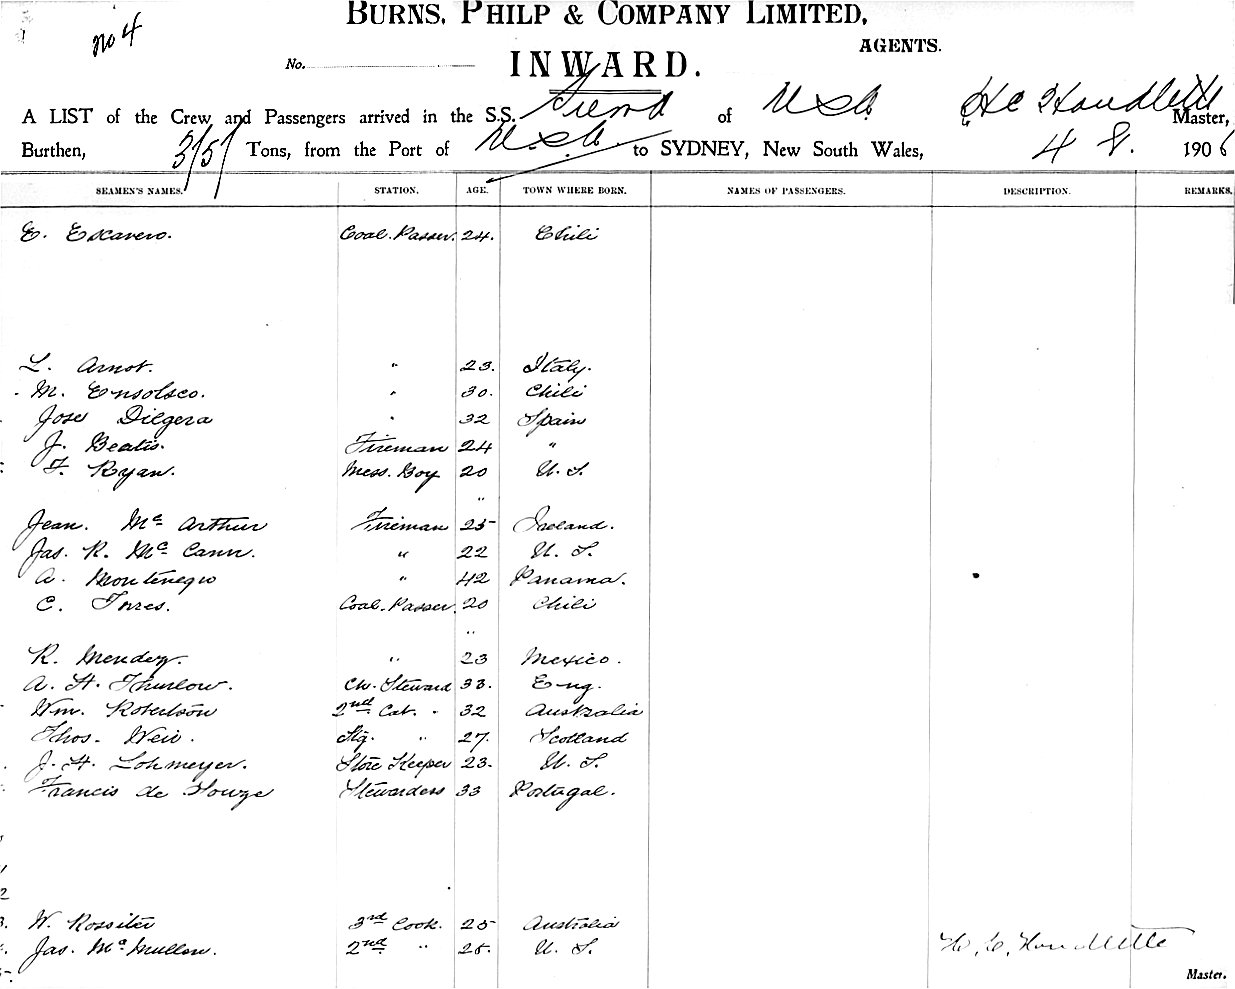 no 4
BURNS, PHILP & COMPANY LIMITED,
AGENTS.
No.
INWARD.
A LIST of the Crew and Passengers arrived in the S.S. Sierra of U S A. H C Houdlette Master,
Burthen, 3151 Tons, from the Port of U.S.A. to SYDNEY, New South Wales, 4 8. 1906
SEAMEN'S NAMES. STATION. AGE. TOWN WHERE BORN. NAMES OF PASSENGERS. DESCRIPTION. REMARKS.
E. Escavero. Coal. Passer. 24. Chili
L. Arnot. " 23. Italy.
M. Ensolsco. " 30. Chili
Jose Dilgera " 32 Spain
J. Beatis. Fireman 24 "
F. Ryan. Mess. Boy 20 U. S.
"
Jean. Mc Arthur Fireman 25 Ireland.
Jas. R. Mc Cann. " 22 U. S.
A. Montenegro " 42 Panama.
C. Torres. Coal. Passer. 20 Chili
"
R. Mendez. " 23 Mexico.
A. H. Thurlow. Ch. Steward 33. Eng.
Wm. Robertson 2nd Cab. " 32 Australia
Thos. Weir. Stg. " 27. Scotland
J. H. Lohmeyer. Store Keeper 23. U. S.
Francis de Souze Stewardess 33 Portugal.
2
3. W. Rossiter 3rd Cook. 25 Australia
Jas. Mc Mullen. 2nd " 25. U. S.
H. C. Houdlette
Master.